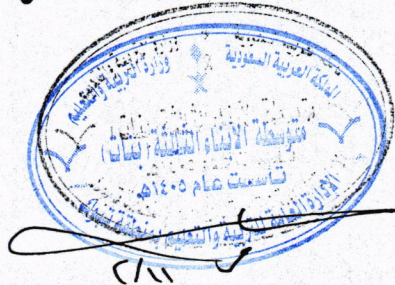 المملكة العربية السعودية
وزارة التربية والتعليم
متوسطة الأبناء الثالثة (بنات)
تأسست عام ١٤٠٥هـ
الإدارة العامة للتربية والتعليم بمنطقة تبوك
٢/١١